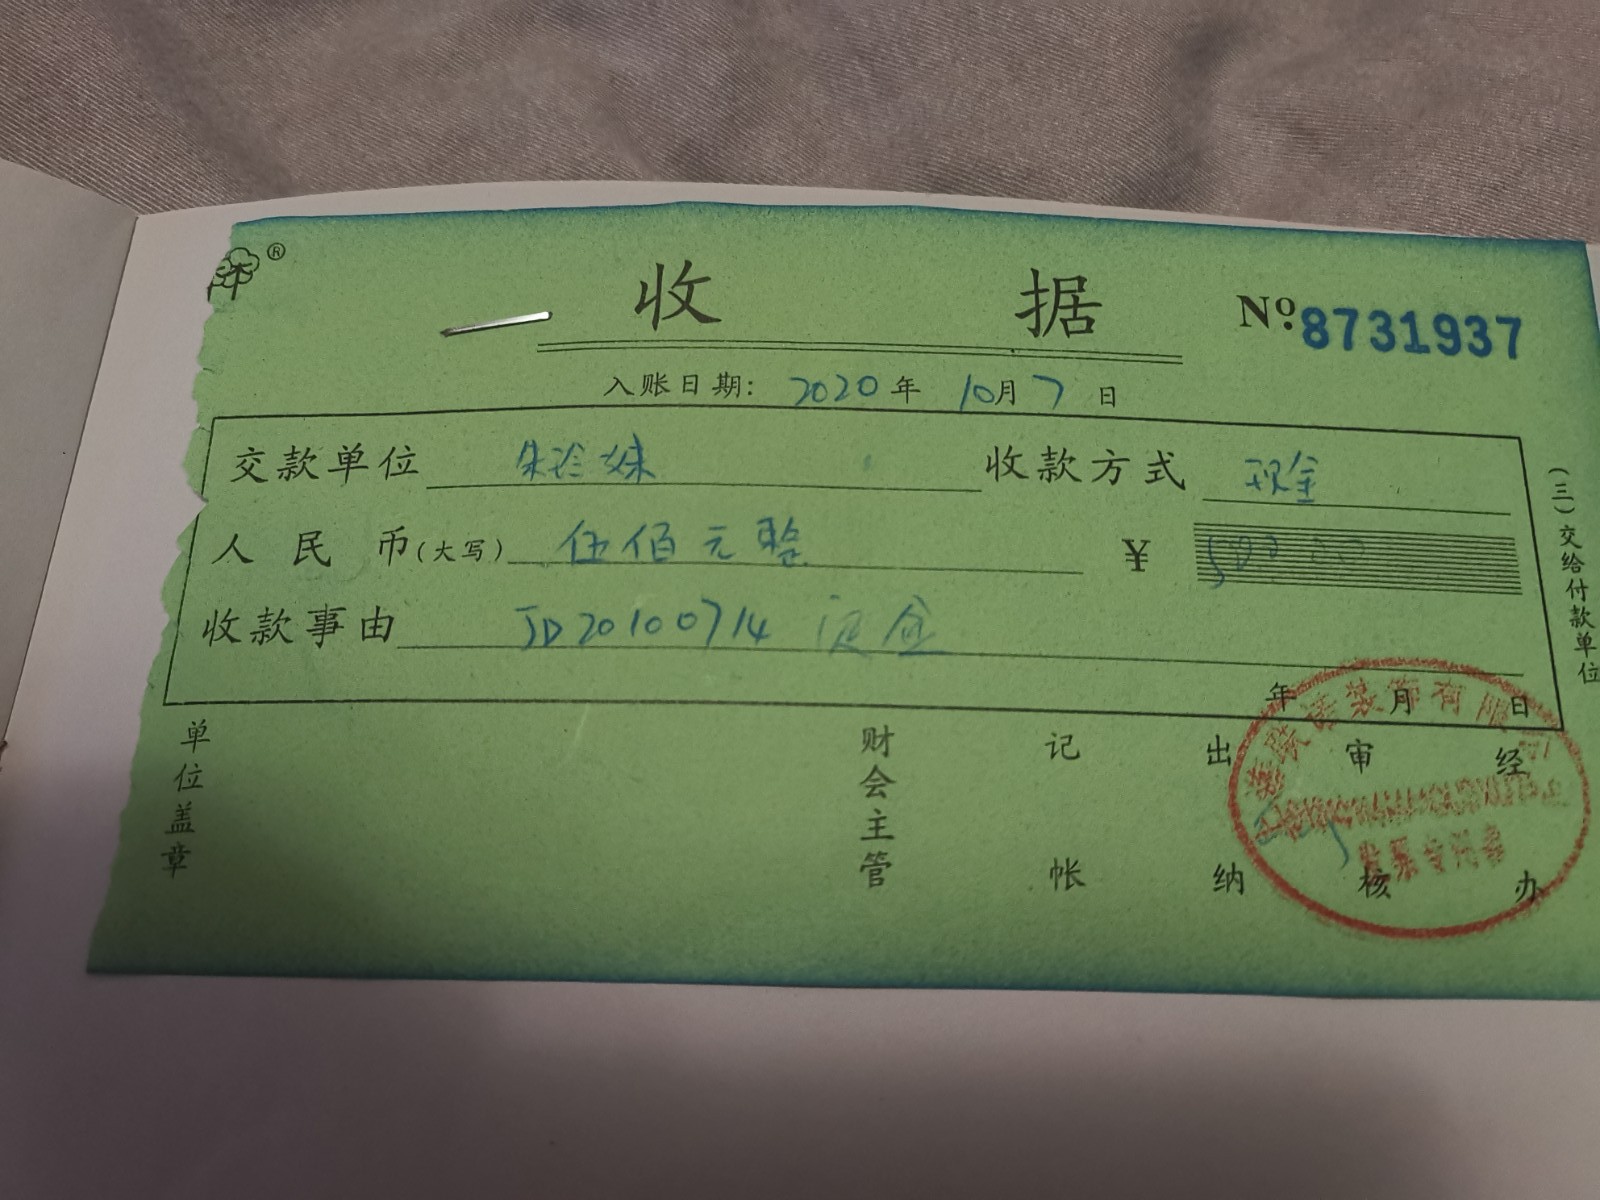 ®
收据 №8731937
入账日期: 2020年 10月7日
交款单位 朱珍妹 收款方式 现金
人民币(大写) 伍佰元整 ¥ 500
收款事由 JD20100714 定金
(三)交给付款单位
年 月 日
单位盖章 财会主管 记帐 出纳 审核 经办
装饰有限
发票专用章